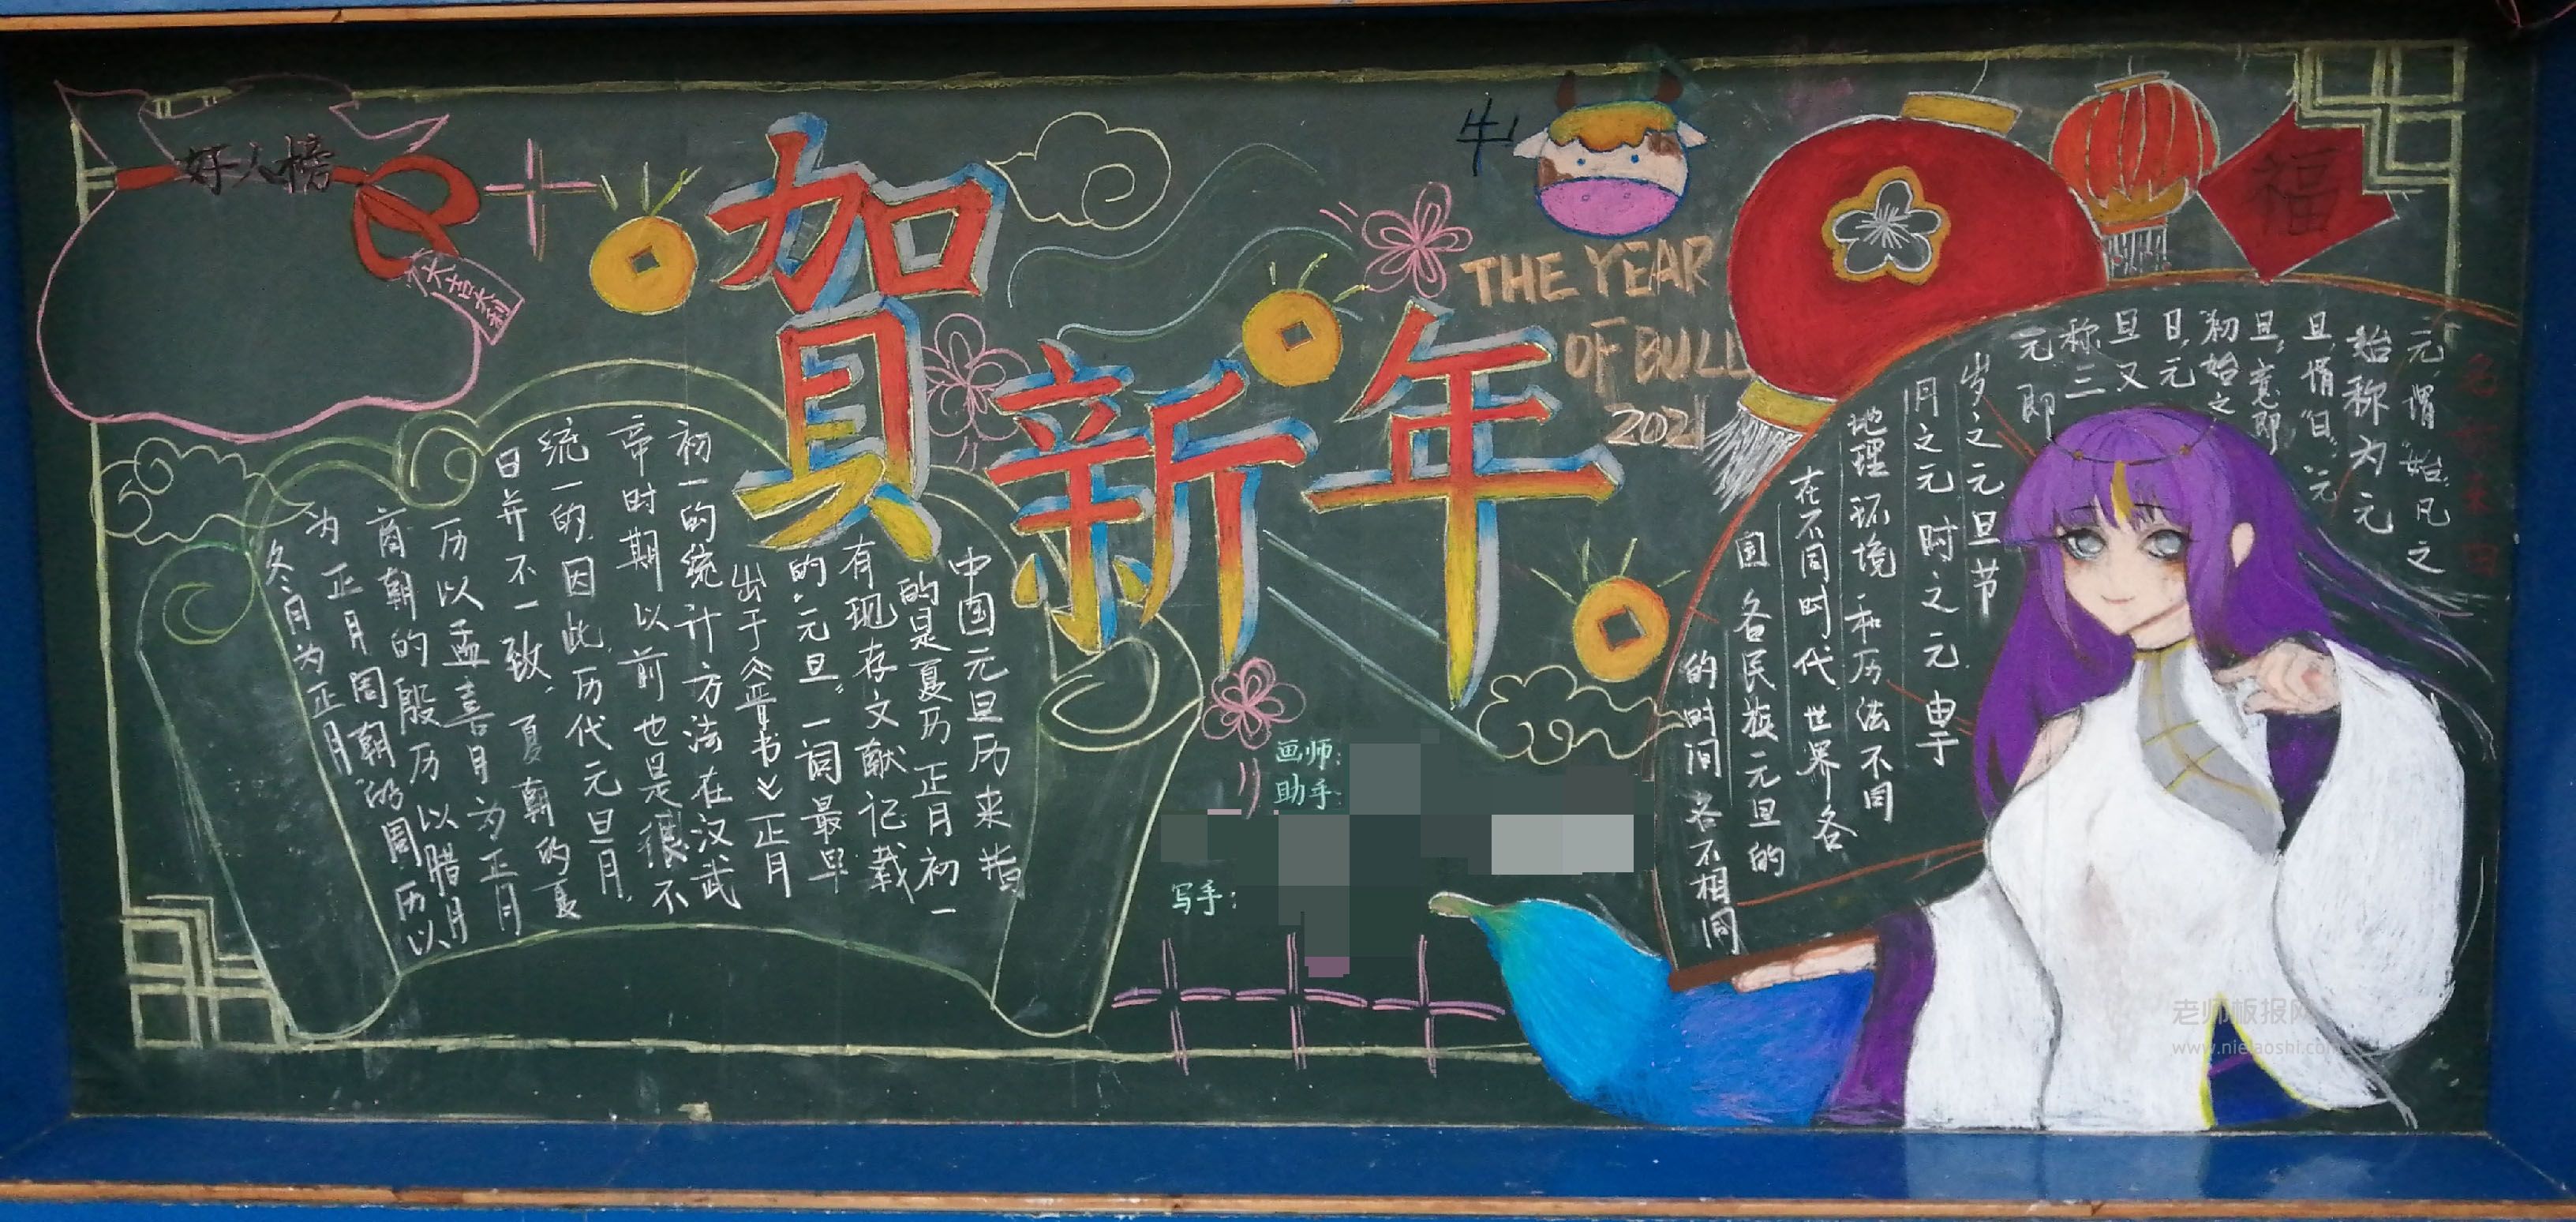 好人榜
大吉大利
贺新年
牛
THE YEAR
OF BULL
2021
福
名称来由
元,谓“始”,凡之
始称为元
旦,谓“日”,元
旦,意即
初始之
日,元
旦又
称三
元,即
岁之元旦节
月之元,时之元.由于
地理环境和历法不同
在不同时代,世界各
国各民族元旦的
的时间各不相同
中国元旦历来指
的是夏历正月初一
有现存文献记载
的“元旦”一词最早
出于《晋书》正月
初一的统计方法在汉武
帝时期以前也是很不
统一的.因此,历代元旦月
日并不一致,夏朝的夏
历以孟喜月为正月
商朝的殷历以腊月
为正月周朝的周历以
冬月为正月
画师:
助手:
写手:
老师板报网
www.nielaoshi.com